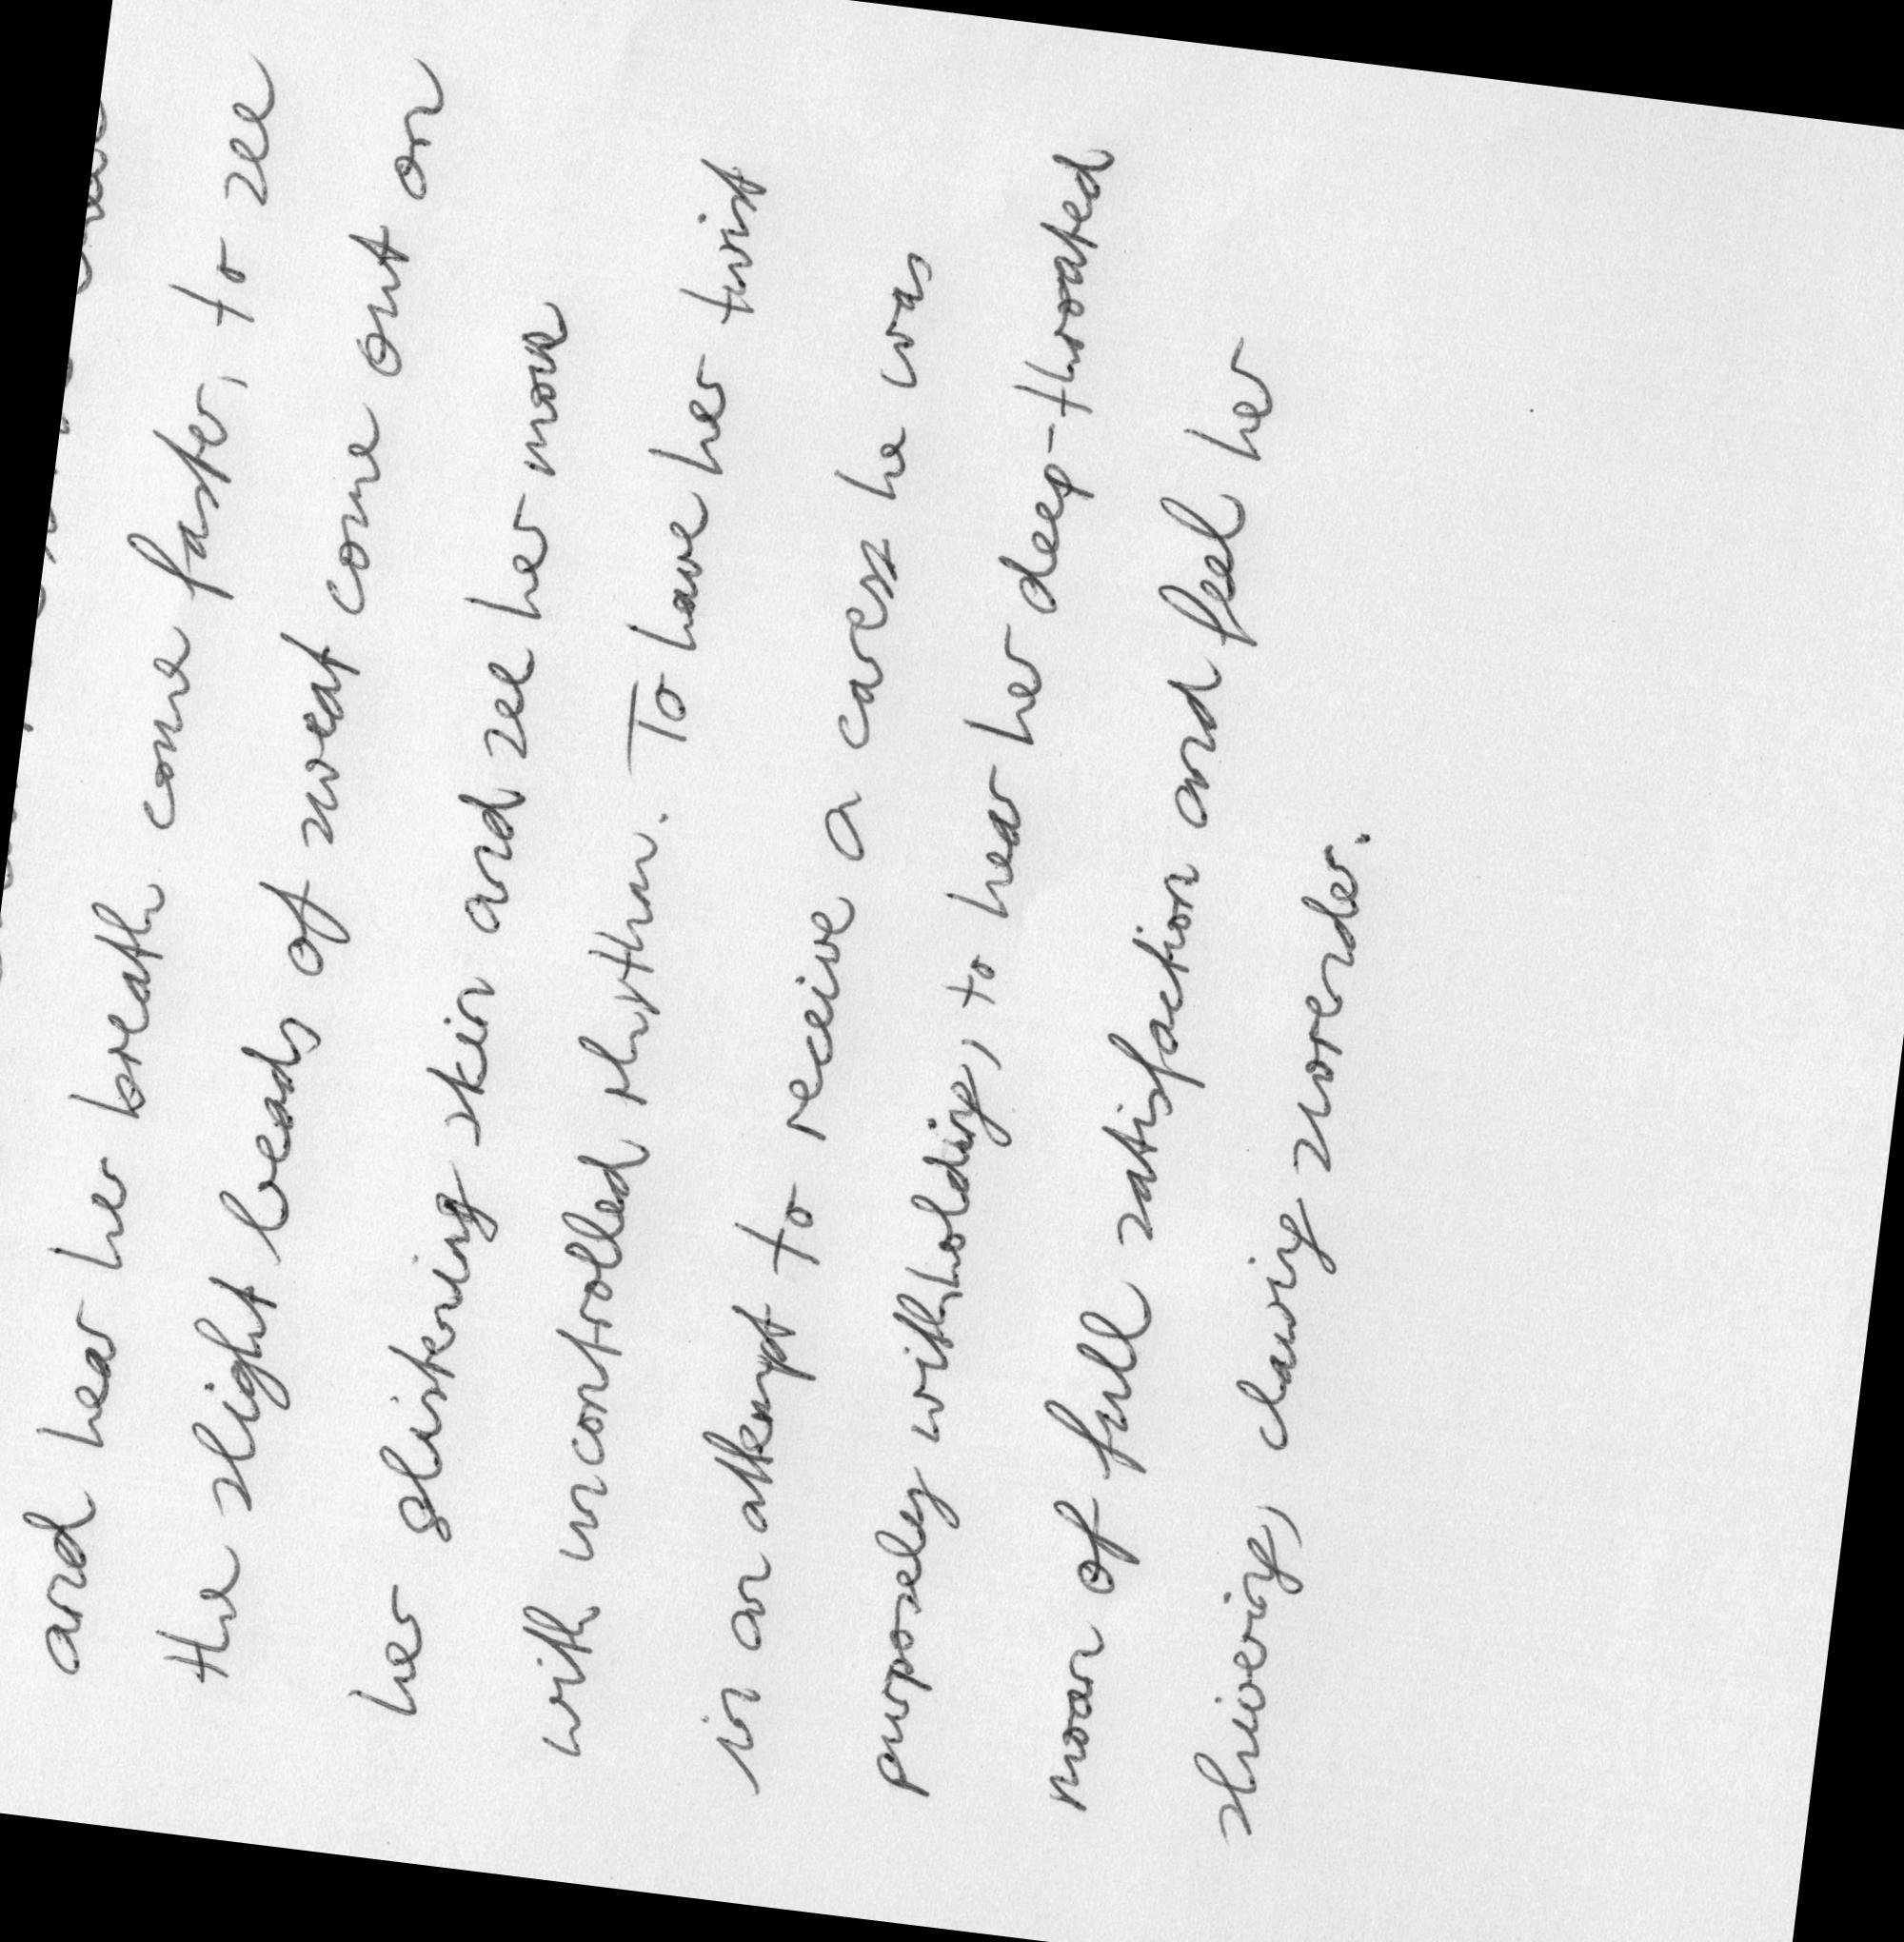 and hear her breath come faster, to see
the slight beads of sweat come out on
her glistening skin and see her move
with uncontrolled rhythm. To have her twist
in an attempt to receive a caress he was
purposely withholding, to hear her deep-throated
moan of full satisfaction and feel her
shivering, clawing surrender.